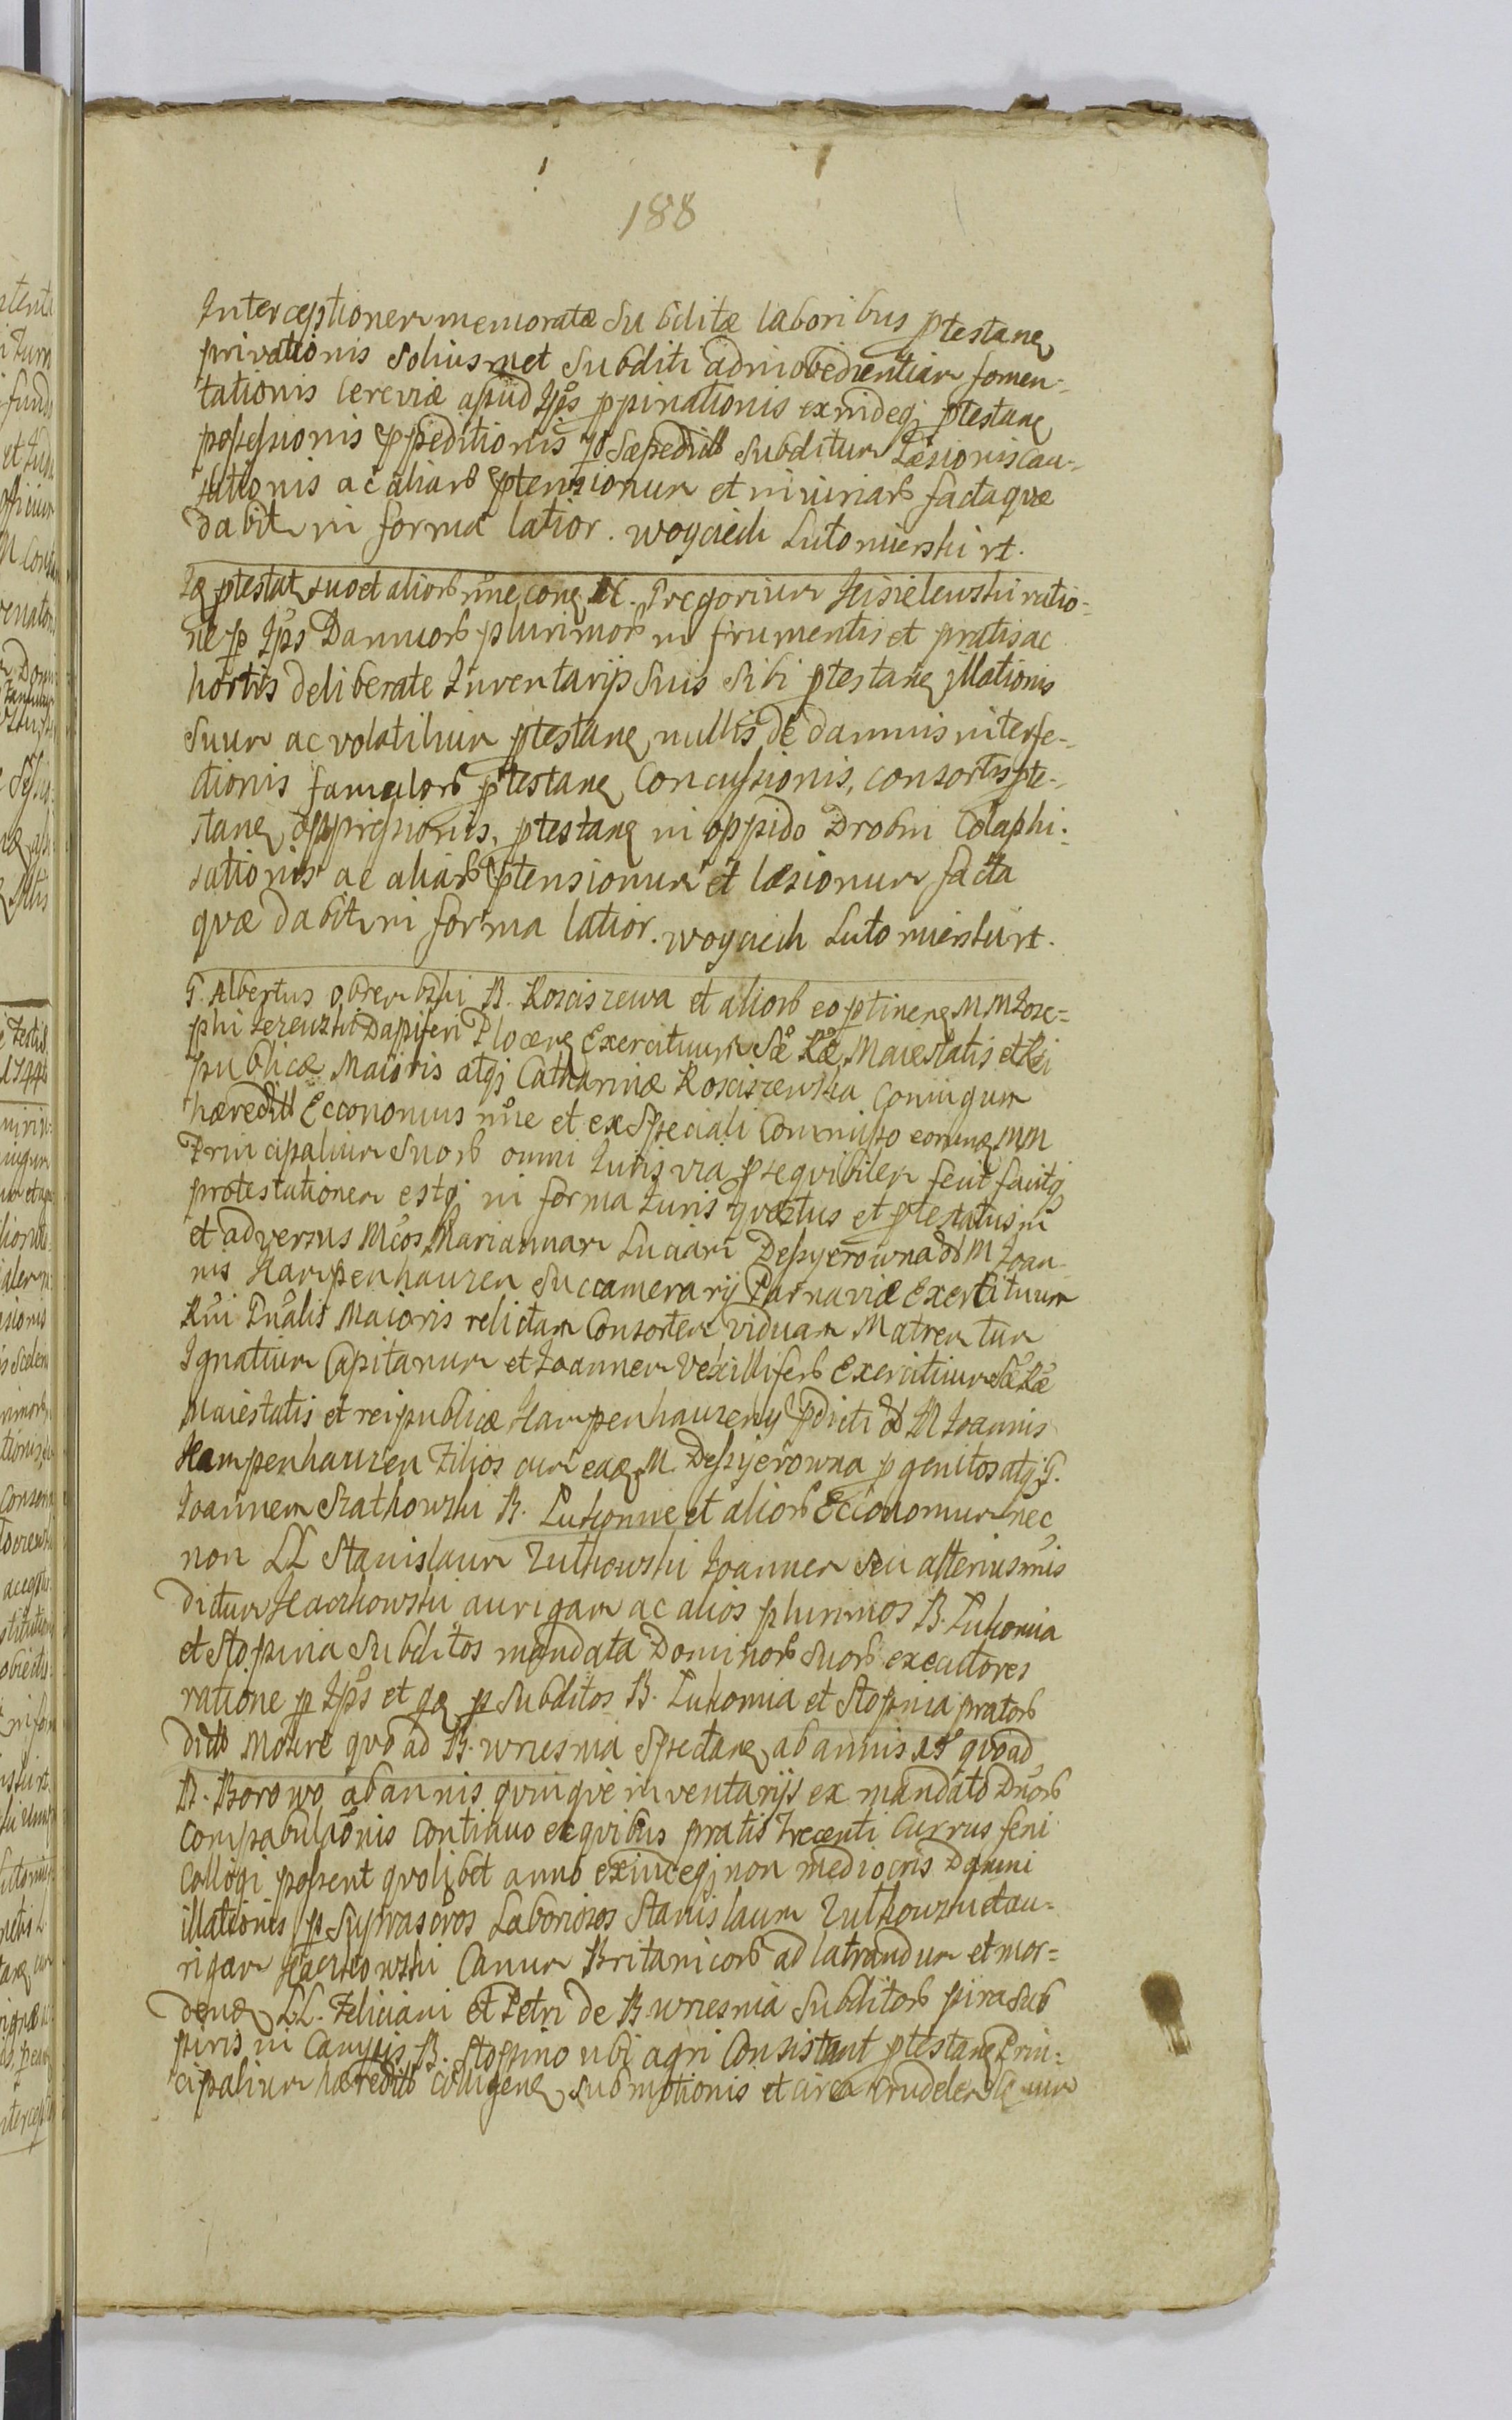 188
Interceptionem memoratæ Subditæ laboribus ptestane
privationis Soliusmet Subditi ad inobedientiam fomen-
tationis Cereviæ apud Ips ppinationis exindeq ptestane
possessionis ppeditionis p Sæpedict Subditum Læsionis Cau-
sationis ac aliarb ptensionum et iniuriarb factaque
dabit in forma latior. Woyciech Lutomierski rt.
Iq ptestat suo et aliorb nne cone N. Gregorium Kisielewski ratio-
ne p Ips Damnorb plurimorb in frumentis et pratis ac
hortis deliberate Inventarijs Suis Sibi ptestane illationis
Suum ac volatilium ptestane nullis de damnis interfe-
ctionis famulorb ptestane Concussionis, consortis pte-
stane oppressionis, ptestane in oppido Drobin Colaphi-
sationis ac aliarb ptensionum et læsionum facta
quæ dabit in forma latior. Woyciech Lutomierski rt.
G. Albertus Obrembski B. Kosciszewa et aliorb eo ptinene MM Iose-
phi Jezewski Dapiferi Plocene Exercituum Sæ Ræ Maiestatis et Rei
publicæ Maioris atqj Catharinæ Kosciszewska Coniugum
hæredit Economus nne et ex Speciali Commisso eorunq MM
Principalium Suorb omni Iuris via psequibilem fecit facitq
protestationem estqj in forma Iuris quæstus et ptestatus in
et adversus Mcos Mariannam Luciam Depyerowna M Ioan-
nis Hampenhauzen Succamerarij Parnaviæ Exercituum
Rni Gnalis Maioris relictam Consortem viduam Matrem tum
Ignatium Capitanum et Ioannem Vexilliferb Exercitium Sæ Ræ
Maiestatis et reipublicæ Hampenhauzeny pdicti M Ioannis
Hampenhauzen Filios cum eaq M. Depyerowna p genitos atqj G.
Ioannem Szatkowski B. Lukomie et aliorb Economum nec
non LL Stanislaum Zulkowski Ioannem seu alterius nnis
dictum Kaczkowski aurigam ac alios plurimos B. Lukomia
et Stopina Subditos mandata Dominorb Suorb executores
ratione p Ips et qq p Subditos B. Lukomia et Stopnia pratorb
dict Mokre quo ad B. Wriesnia Spectane ab annis 15 quo ad
B. Borowo ab annis quinque inventarijs ex mandato Dnorb
Compabulsionis Continuo ex quibus pratis Trecenti Currus feni
Colligi possent quolibet anno exindeqj non mediocris Damni
illationis p Suprascros Laboriosos Stanislaum Zulkowski et au-
rigam Kaczkowski Canum Britanicorb ad latrandum et mor-
dene LL. Feliciani et Petri de B. Wriesnia Subditorb pira Sub
piris in Campis B. Stopino ubi agri Consistunt ptestane Prin-
cipalium hæredit colligene Submotionis et circa Crudelem